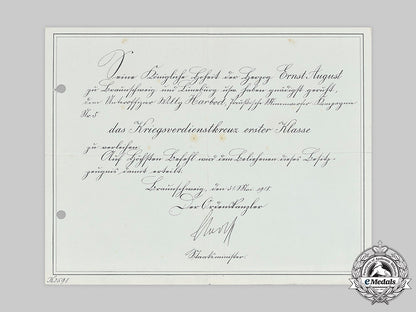 Seine Königliche Hoheit der Herzog Ernst August
zu Braunschweig und Lüneburg usw. haben gnädigst geruht,
dem Unteroffizier Willy Harbort, Preußische Minenwerfer-Kompagnie
No. 5
das Kriegsverdienstkreuz erster Klasse
zu verleihen.
Auf Höchsten Befehl wird dem Beliehenen dieses Besitz-
zeugnis damit erteilt.
Braunschweig, den 31. Mai 1918.
Der Ordenskanzler
Staatsminister.
K1591
eMedals